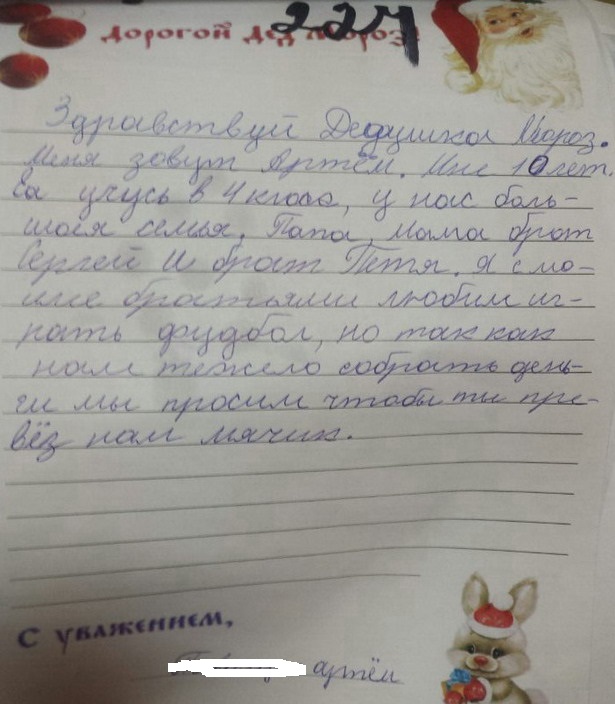 Дорогой Дед Мороз
224
Здравствуй Дедушка Мороз.
Меня зовут Артём. Мне 10 лет.
Я учусь в 4 класа, у нас боль-
шая семья. Папа, мама брат
Сергей и брат Петя. Я с мо-
ими братьями любим иг-
рать фудбол, но так как
нам тежело собрать день-
ги мы просим чтобы ты при-
вёз нам мячик.
С уважением,
артём